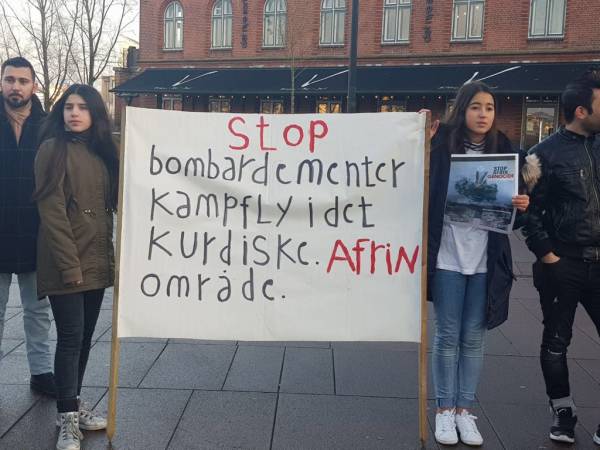 Stop
bombardementer
KampfLy i det
Kurdiske. AfriN
område.
STOP
AFRIN
GENOCIDE